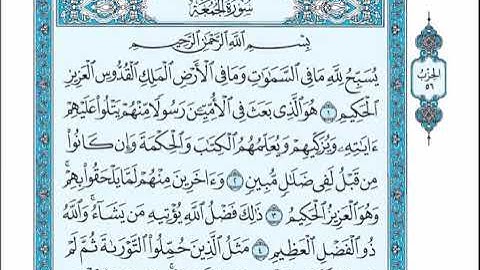 سُورَةُ الجُمُعَةِ
بِسْمِ اللَّهِ الرَّحْمَٰنِ الرَّحِيمِ
يُسَبِّحُ لِلَّهِ مَا فِي السَّمَٰوَٰتِ وَمَا فِي الْأَرْضِ الْمَلِكِ الْقُدُّوسِ الْعَزِيزِ
الْحَكِيمِ ١ هُوَ الَّذِي بَعَثَ فِي الْأُمِّيِّينَ رَسُولًا مِّنْهُمْ يَتْلُوا عَلَيْهِمْ
ءَايَٰتِهِ وَيُزَكِّيهِمْ وَيُعَلِّمُهُمُ الْكِتَٰبَ وَالْحِكْمَةَ وَإِن كَانُوا
مِن قَبْلُ لَفِي ضَلَٰلٍ مُّبِينٍ ٢ وَءَاخَرِينَ مِنْهُمْ لَمَّا يَلْحَقُوا بِهِمْ
وَهُوَ الْعَزِيزُ الْحَكِيمُ ٣ ذَٰلِكَ فَضْلُ اللَّهِ يُؤْتِيهِ مَن يَشَاءُ وَاللَّهُ
ذُو الْفَضْلِ الْعَظِيمِ ٤ مَثَلُ الَّذِينَ حُمِّلُوا التَّوْرَىٰةَ ثُمَّ لَمْ
الحِزْبُ
٥٦